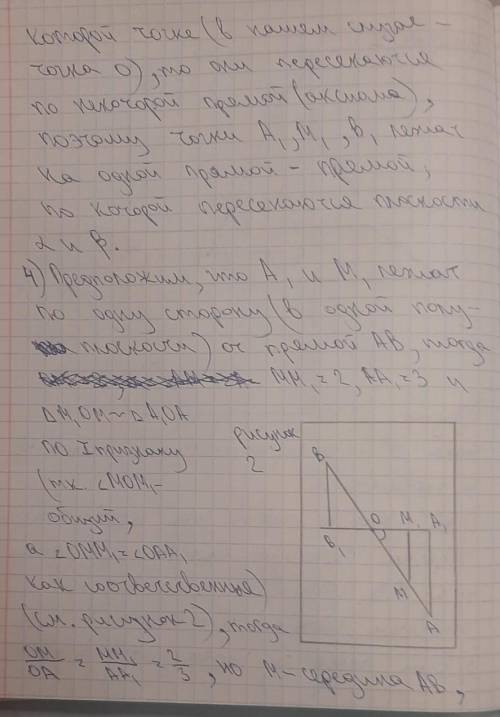 которой точке (в нашем случае –
точка О), то они пересекаются
по некоторой прямой (аксиома),
поэтому точки A₁, M₁, B₁ лежат
на одной прямой – прямой,
по которой пересекаются плоскости
α и β.
4) Предположим, что A₁ и M₁ лежат
по одну сторону (в одной полу-
плоскости) от прямой AB, тогда
MM₁ = 2, AA₁ = 3 и
△M₁OM ~ △A₁OA
по I признаку
(тк ∠MOM₁ –
общий,
а ∠OMM₁ = ∠OAA₁
как соответственные)
(см. рисунок 2), тогда
OM/OA = MM₁/AA₁ = 2/3, но M – середина AB,
рисунок
2
B
O M₁ A₁
B₁
M
A